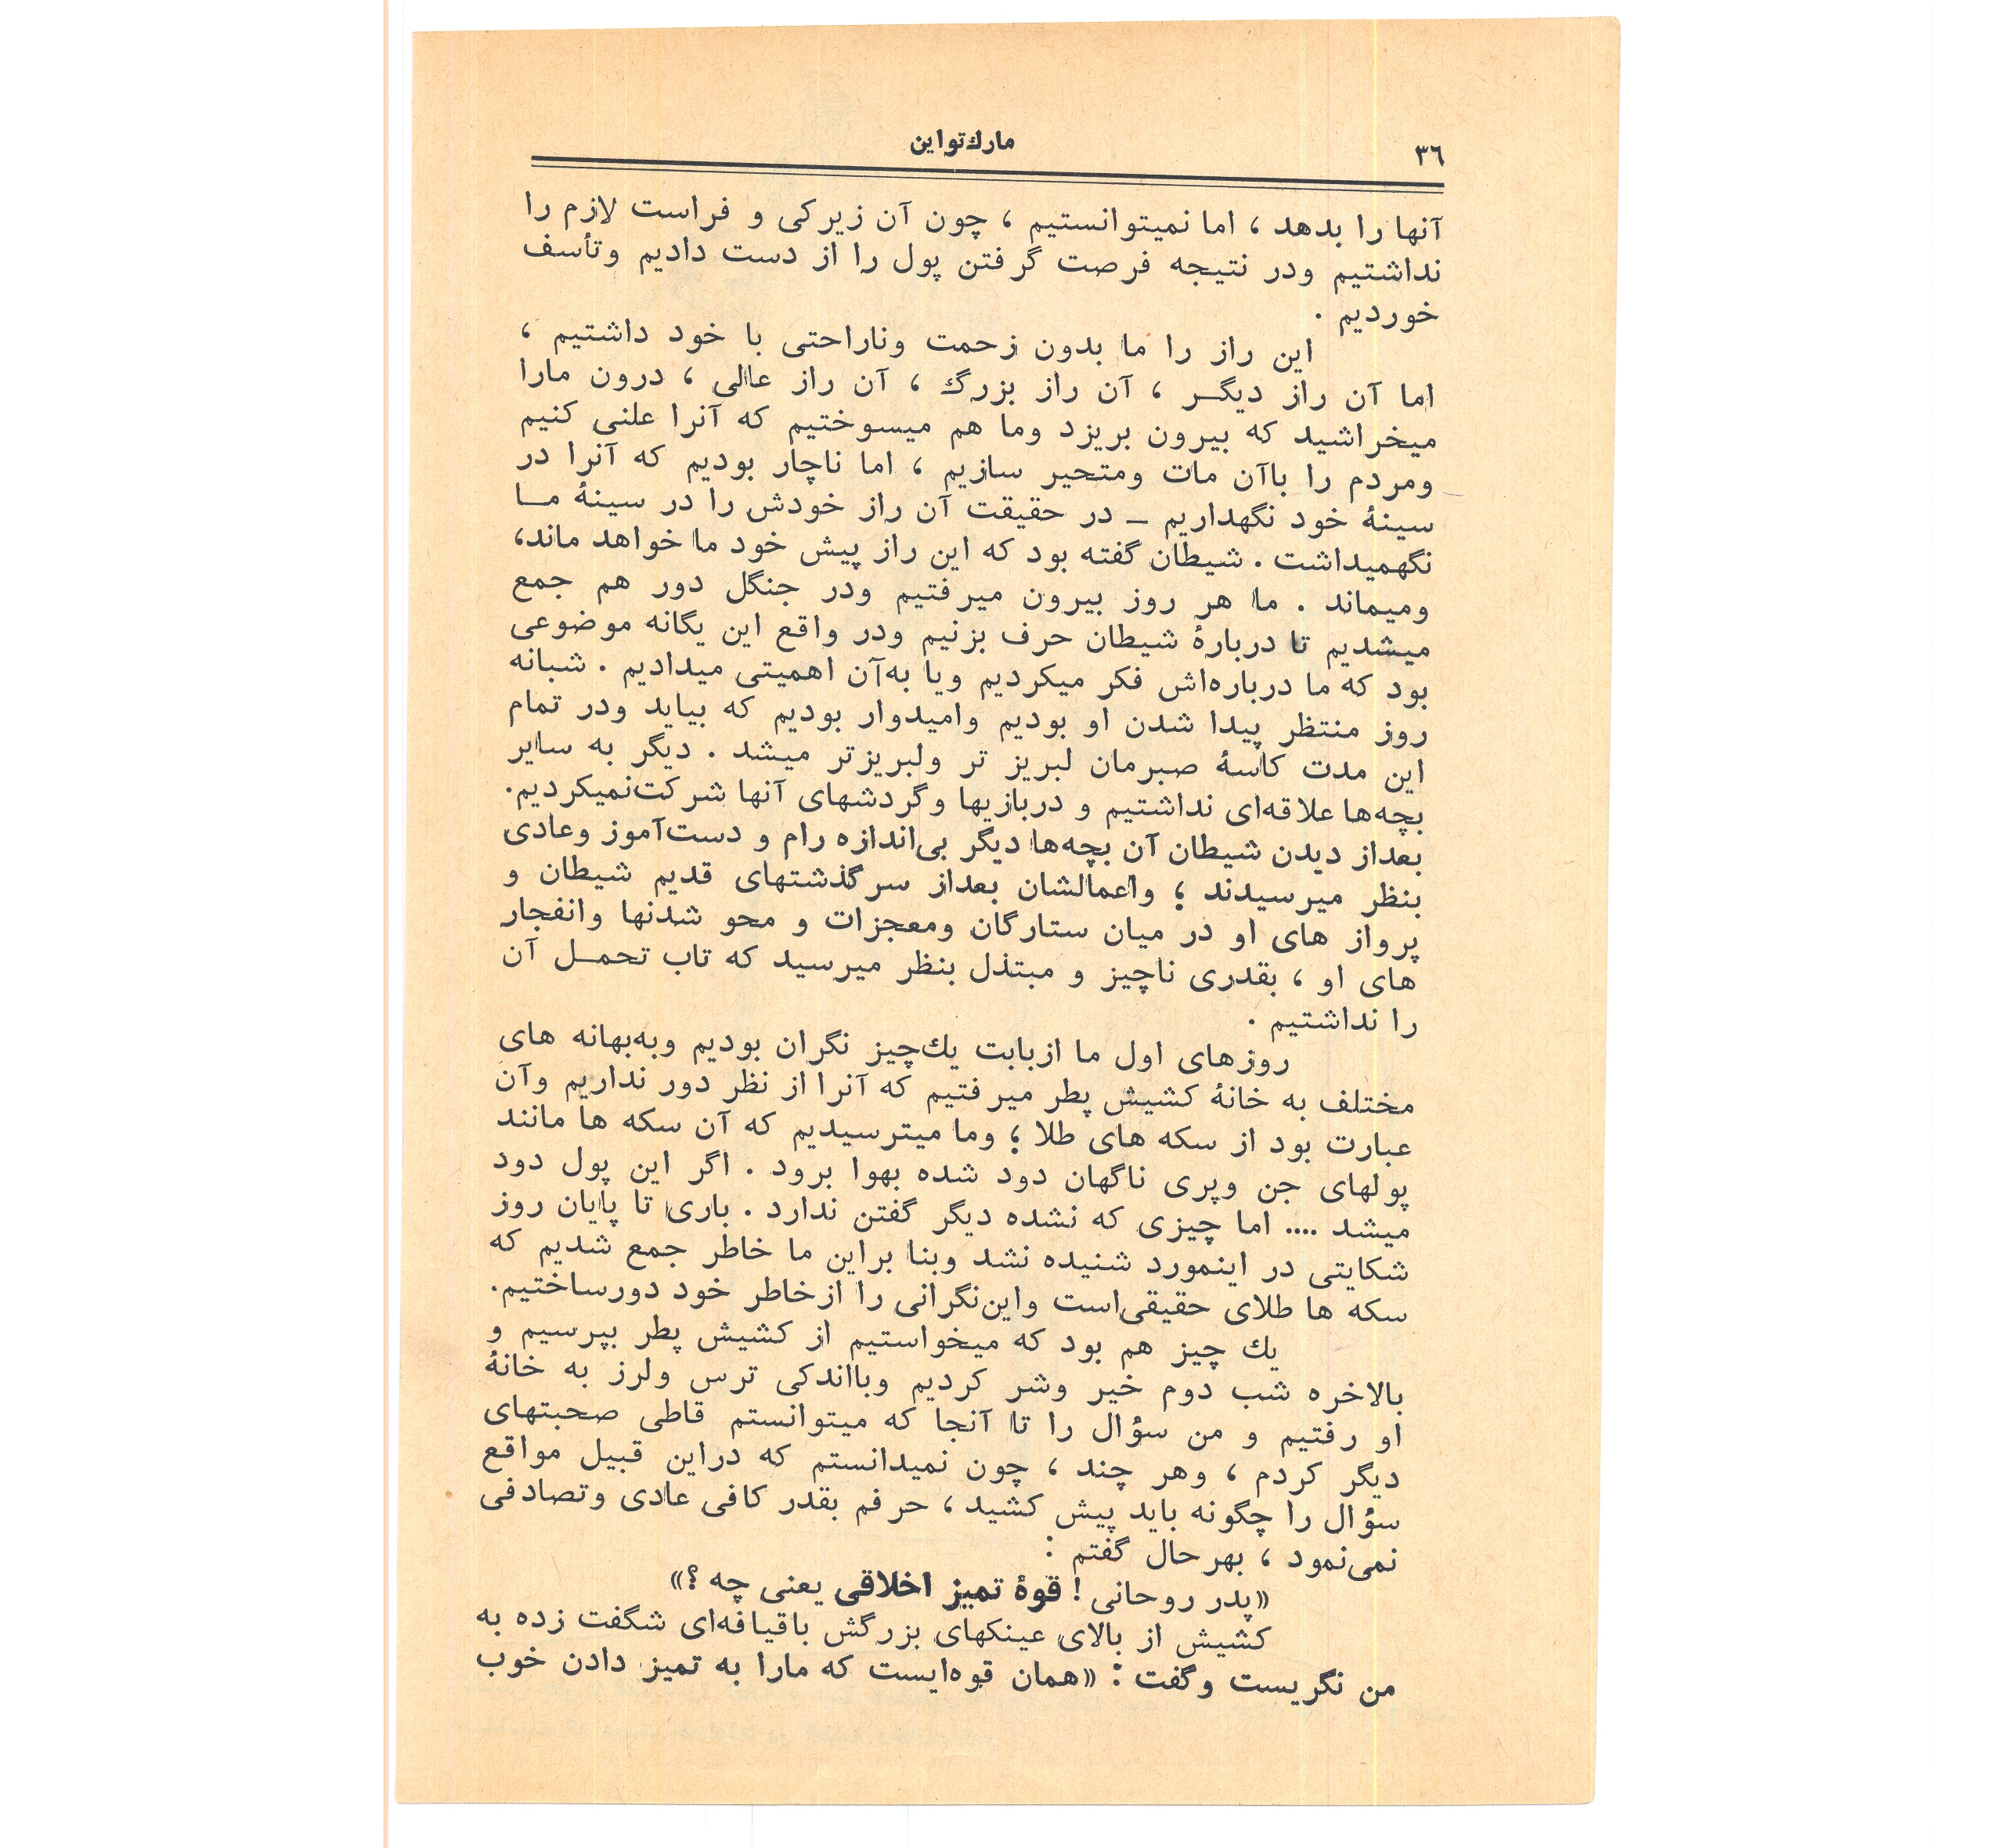 ۳٦
مارك‌تواین
آنها را بدهد ، اما نمیتوانستیم ، چون آن زیرکی و فراست لازم را
نداشتیم ودر نتیجه فرصت گرفتن پول را از دست دادیم وتأسف
خوردیم .
این راز را ما بدون زحمت وناراحتی با خود داشتیم ،
اما آن راز دیگـر ، آن راز بزرگ ، آن راز عالی ، درون مارا
میخراشید که بیرون بریزد وما هم میسوختیم که آنرا علنی کنیم
ومردم را باآن مات ومتحیر سازیم ، اما ناچار بودیم که آنرا در
سینهٔ خود نگهداریم ــ در حقیقت آن راز خودش را در سینهٔ مـا
نگهمیداشت . شیطان گفته بود که این راز پیش خود ما خواهد ماند،
ومیماند . ما هر روز بیرون میرفتیم ودر جنگل دور هم جمع
میشدیم تا دربارهٔ شیطان حرف بزنیم ودر واقع این یگانه موضوعی
بود که ما درباره‌اش فکر میکردیم ویا به‌آن اهمیتی میدادیم . شبانه
روز منتظر پیدا شدن او بودیم وامیدوار بودیم که بیاید ودر تمام
این مدت کاسهٔ صبرمان لبریز تر ولبریزتر میشد . دیگر به سایر
بچه‌ها علاقه‌ای نداشتیم و دربازیها وگردشهای آنها شرکت‌نمیکردیم.
بعداز دیدن شیطان آن بچه‌ها دیگر بی‌اندازه رام و دست‌آموز وعادی
بنظر میرسیدند ؛ واعمالشان بعداز سرگذشتهای قدیم شیطان و
پرواز های او در میان ستارگان ومعجزات و محو شدنها وانفجار
های او ، بقدری ناچیز و مبتذل بنظر میرسید که تاب تحمـل آن
را نداشتیم .
روزهای اول ما ازبابت یك‌چیز نگران بودیم وبه‌بهانه های
مختلف به خانهٔ کشیش پطر میرفتیم که آنرا از نظر دور نداریم وآن
عبارت بود از سکه های طلا ؛ وما میترسیدیم که آن سکه ها مانند
پولهای جن وپری ناگهان دود شده بهوا برود . اگر این پول دود
میشد .... اما چیزی که نشده دیگر گفتن ندارد . باری تا پایان روز
شکایتی در اینمورد شنیده نشد وبنا براین ما خاطر جمع شدیم که
سکه ها طلای حقیقی‌است واین‌نگرانی را ازخاطر خود دورساختیم.
یك چیز هم بود که میخواستیم از کشیش پطر بپرسیم و
بالاخره شب دوم خیر وشر کردیم وبااندکی ترس ولرز به خانهٔ
او رفتیم و من سؤال را تا آنجا که میتوانستم قاطی صحبتهای
دیگر کردم ، وهر چند ، چون نمیدانستم که دراین قبیل مواقع
سؤال را چگونه باید پیش کشید ، حرفم بقدر کافی عادی وتصادفی
نمی‌نمود ، بهرحال گفتم :
«پدر روحانی ! قوهٔ تمیز اخلاقی یعنی چه ؟»
کشیش از بالای عینکهای بزرگش باقیافه‌ای شگفت زده به
من نگریست وگفت : «همان قوه‌ایست که مارا به تمیز دادن خوب